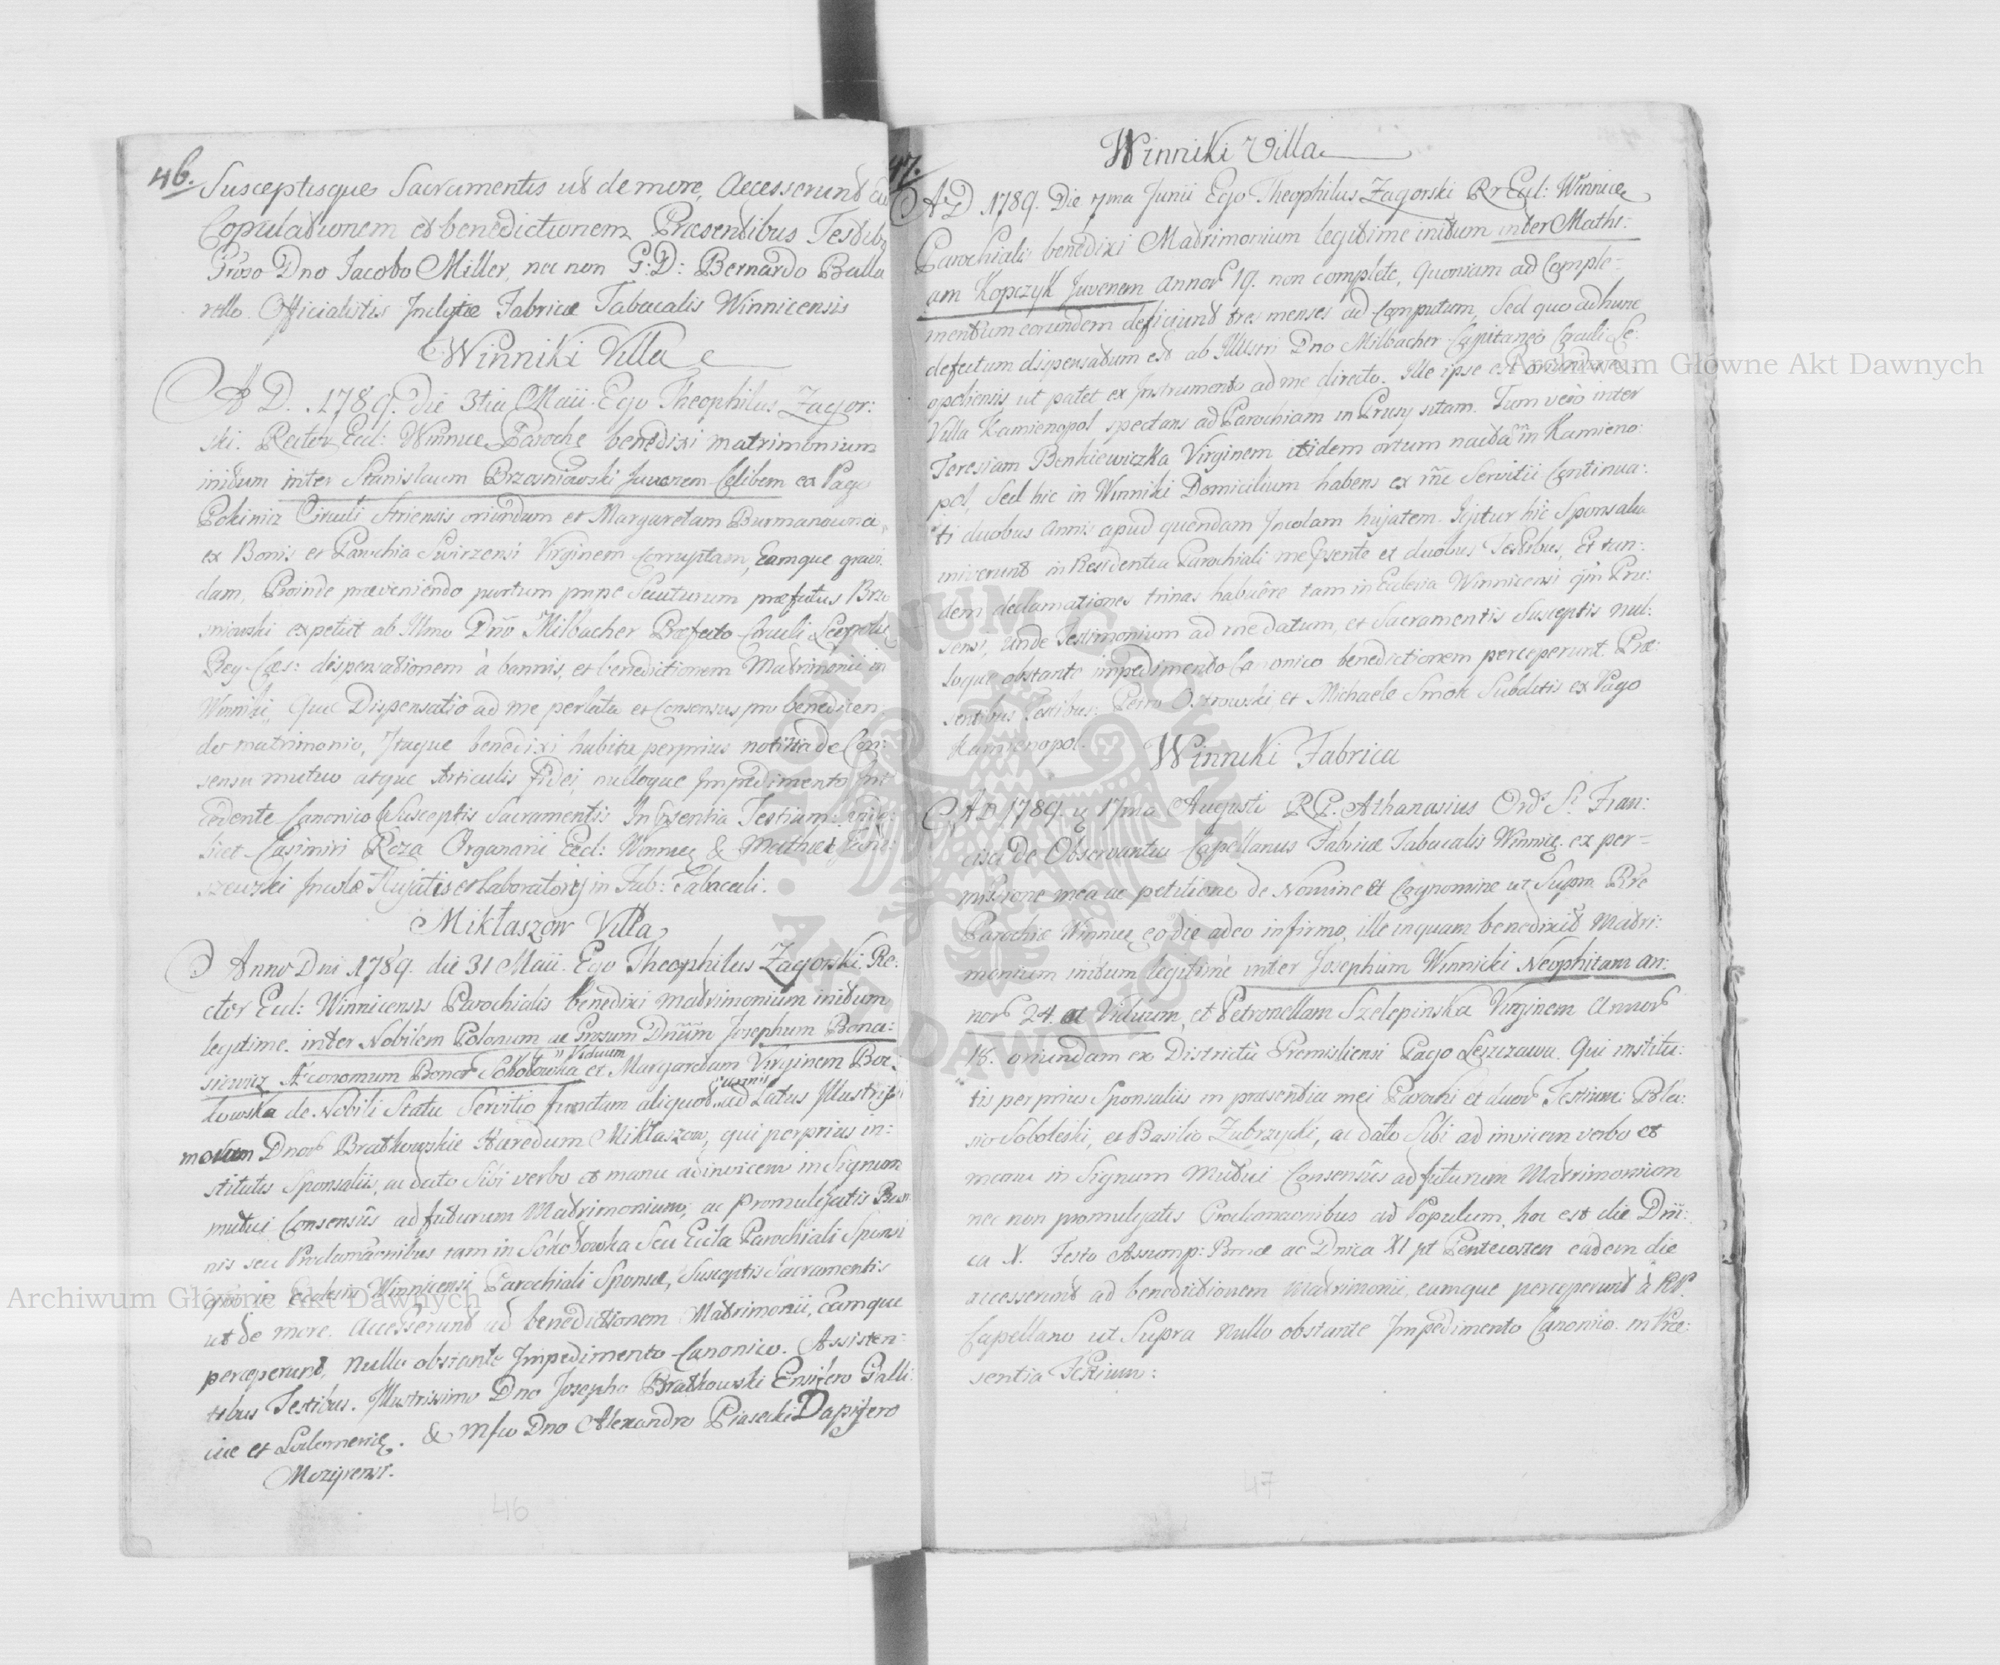 46.
Susceptisque Sacramentis ut de more, Accesserunt ad
Copulationem et benedictionem Præsentibus Testibq
Groso Dno Jacobo Miller, nec non G: D: Bernardo Balla
rello Officialistis Inclytæ Fabricæ Tabacalis Winnicensis
Winniki Villa
A D. 1789. die 3tia Maii. Ego Theophilus Zagor:
ski. Rector Eccl: Winnice Paroche benedixi matrimonium
initum inter Stanislaum Brzosniowski Juvenem Celibem ex Pago
Pokinicz Circuli Striensis oriundum et Margaretam Burmanowna
ex Bonis et Parochia Swirzensi Virginem corruptam, Eamque gravi
dam, Proinde præveniendo partum præfatus Brzo
sniowski expetiit ab Illmo Dño Milbacher Præfecto Circuli Leopolis
Reg: Cæs: dispensationem à bannis, et beneditionem Matrimonii in
Winniki, Quæ Dispensatio ad me perlata et Consensus pro benedicen
do matrimonio, Itaque benedixi habita perprius notitia de Con:
sensu mutuo atque Articulis fidei, nulloque Impedimento
cedente Canonico Susceptis Sacramentis In Psentia Testium:
licet Casimiri Reza Organarii Eccl: Winnice & Mathæi
szewski Incolæ Hujatis et laboratoris in Fab: Tabacali.
Mikłaszow Villa
Anno Dni 1789. die 31 Maii. Ego Theophilus Zagorski Re:
ctor Eccl: Winnicensis Parochialis benedixi matrimonium initum
legitime. inter Nobilem Polonum ac Grosum Dnum Josephum Bona:
siewicz Æconomum Bonor Sokołowka "Viduum et Margaretam Virginem Boc
kowska de Nobili Statu Servitio functam aliquot annis ad Latus Illustris
morum Dnor Bratkowskie Hæredum Mikłaszow, qui perprius in:
stitutis Sponsaliis, ac dato Sibi verbo et manu adinvicem in Signum
mutui Consensûs ad futurum Matrimonium, ac promulgatis Ban
nis seu Proclamãonibus tam in Sokołowka Seu Eccla Parochiali Sponsi
qm in Ecclesia Winnicensi Parochiali Sponsæ, Susceptis Sacramentis
ut de more. Accesserunt ad benedictionem Matrimonii, eamque
perceperunt, Nullo obstante Impedimento Canonico. Assisten:
tibus Testibus. Illustrissimo Dno Josepho Bratkowski Ensifero Galli:
ciæ et Lodomeriæ. & Mfco Dno Alexandro Piasecki Dapifero
Mozyrensi.
46
47.
Winniki Villa
A D 1789. Die 7ma Junii Ego Theophilus Zagorski Rr Eccl: Winnice
Parochialis benedixi Matrimonium legitime initum inter Mathi:
am Kopczyk Juvenem Annor 19. non complete, quoniam ad Comple-
mentum eorundem deficiunt tres menses ad Computum, Sed quo ad hunc
defectum dispensatum est ab Illustri Dno Milbacher Capitaneo Circuli Le:
opoliensis ut patet ex Instrumento ad me directo. Ille ipse est oriundus ex
Villa Kamienopol spectans ad Parochiam in Prusy sitam. Tum vero inter
Teresiam Benkiewiczka Virginem itidem ortum nacta in Kamieno:
pol, Sed hic in Winniki Domicilium habens ex rñe Servitii Continua:
ti duobus annis apud quendam Incolam hujatem. Igitur hic Sponsalia
iniverunt in Residentia Parochiali me Psente et duobus Testibus, Et tan:
dem declamationes trinas habuêre tam in Ecclesia Winnicensi qm Pru:
sensi, unde Testimonium ad me datum, et Sacramentis Susceptis nul:
loque obstante impedimento Canonico benedictionem perceperunt. Præ:
sentibus Testibus: Petro Ostrowski, et Michaele Smok Subditis ex Pago
Kamienopol.
Winniki Fabrica
A D 1789. 17ma Augusti R P. Athanasius Ord: St. Fran:
cisci de Observantia Capellanus Fabricæ Tabacalis Winnice. ex per-
missione mea ac petitione de Nomine et Cognomine ut Supra Rre
Parochiæ Winnice eo die adeo infirmo, ille inquam benedixit Matri:
monium initum legitime inter Josephum Winnicki Neophitam an:
nor 24. et Viduum, et Petronellam Szelepinska Virginem Annor
18. oriundam ex Districtu Premisliensi Pago Leszczawa. Qui institu:
tis perprius Sponsaliis in præsentia mei Parochi et duor Testium: Bla:
sio Soboleski, et Basilio Zubrzycki, ac dato Sibi ad invicem verbo et
manu in Signum Mutui Consensûs ad futurum Matrimonium
nec non promulgatis Proclamaonibus ad Populum, hoc est die Dnii:
ca X. Festo Assump: Bmæ ac Dnica XI pt Pentecosten eadem die
accesserunt ad benedictionem Matrimonii, eamque perceperunt à RP.
Capellano ut Supra Nullo obstante Impedimento Canonico. in Præ:
sentia Testium:
47
Archiwum Główne Akt Dawnych
Archiwum Główne Akt Dawnych
ARCHIWUM GŁÓWNE AKT DAWNYCH